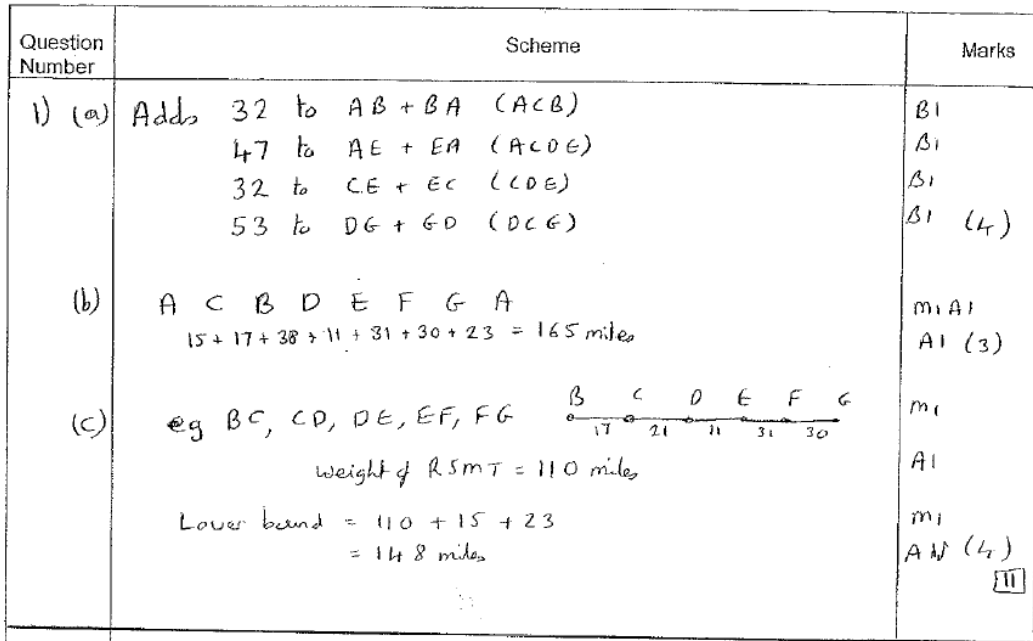 Question Number Scheme Marks
1) (a) Adds 32 to AB + BA (ACB) B1
47 to AE + EA (ACDE) B1
32 to CE + EC (CDE) B1
53 to DG + GD (DCG) B1 (4)
(b) A C B D E F G A M1 A1
15 + 17 + 38 + 11 + 31 + 30 + 23 = 165 miles A1 (3)
B C D E F G
(c) eg BC, CD, DE, EF, FG M1
17 21 11 31 30
Weight of RSMT = 110 miles A1
Lower bound = 110 + 15 + 23 M1
= 148 miles (4)
11